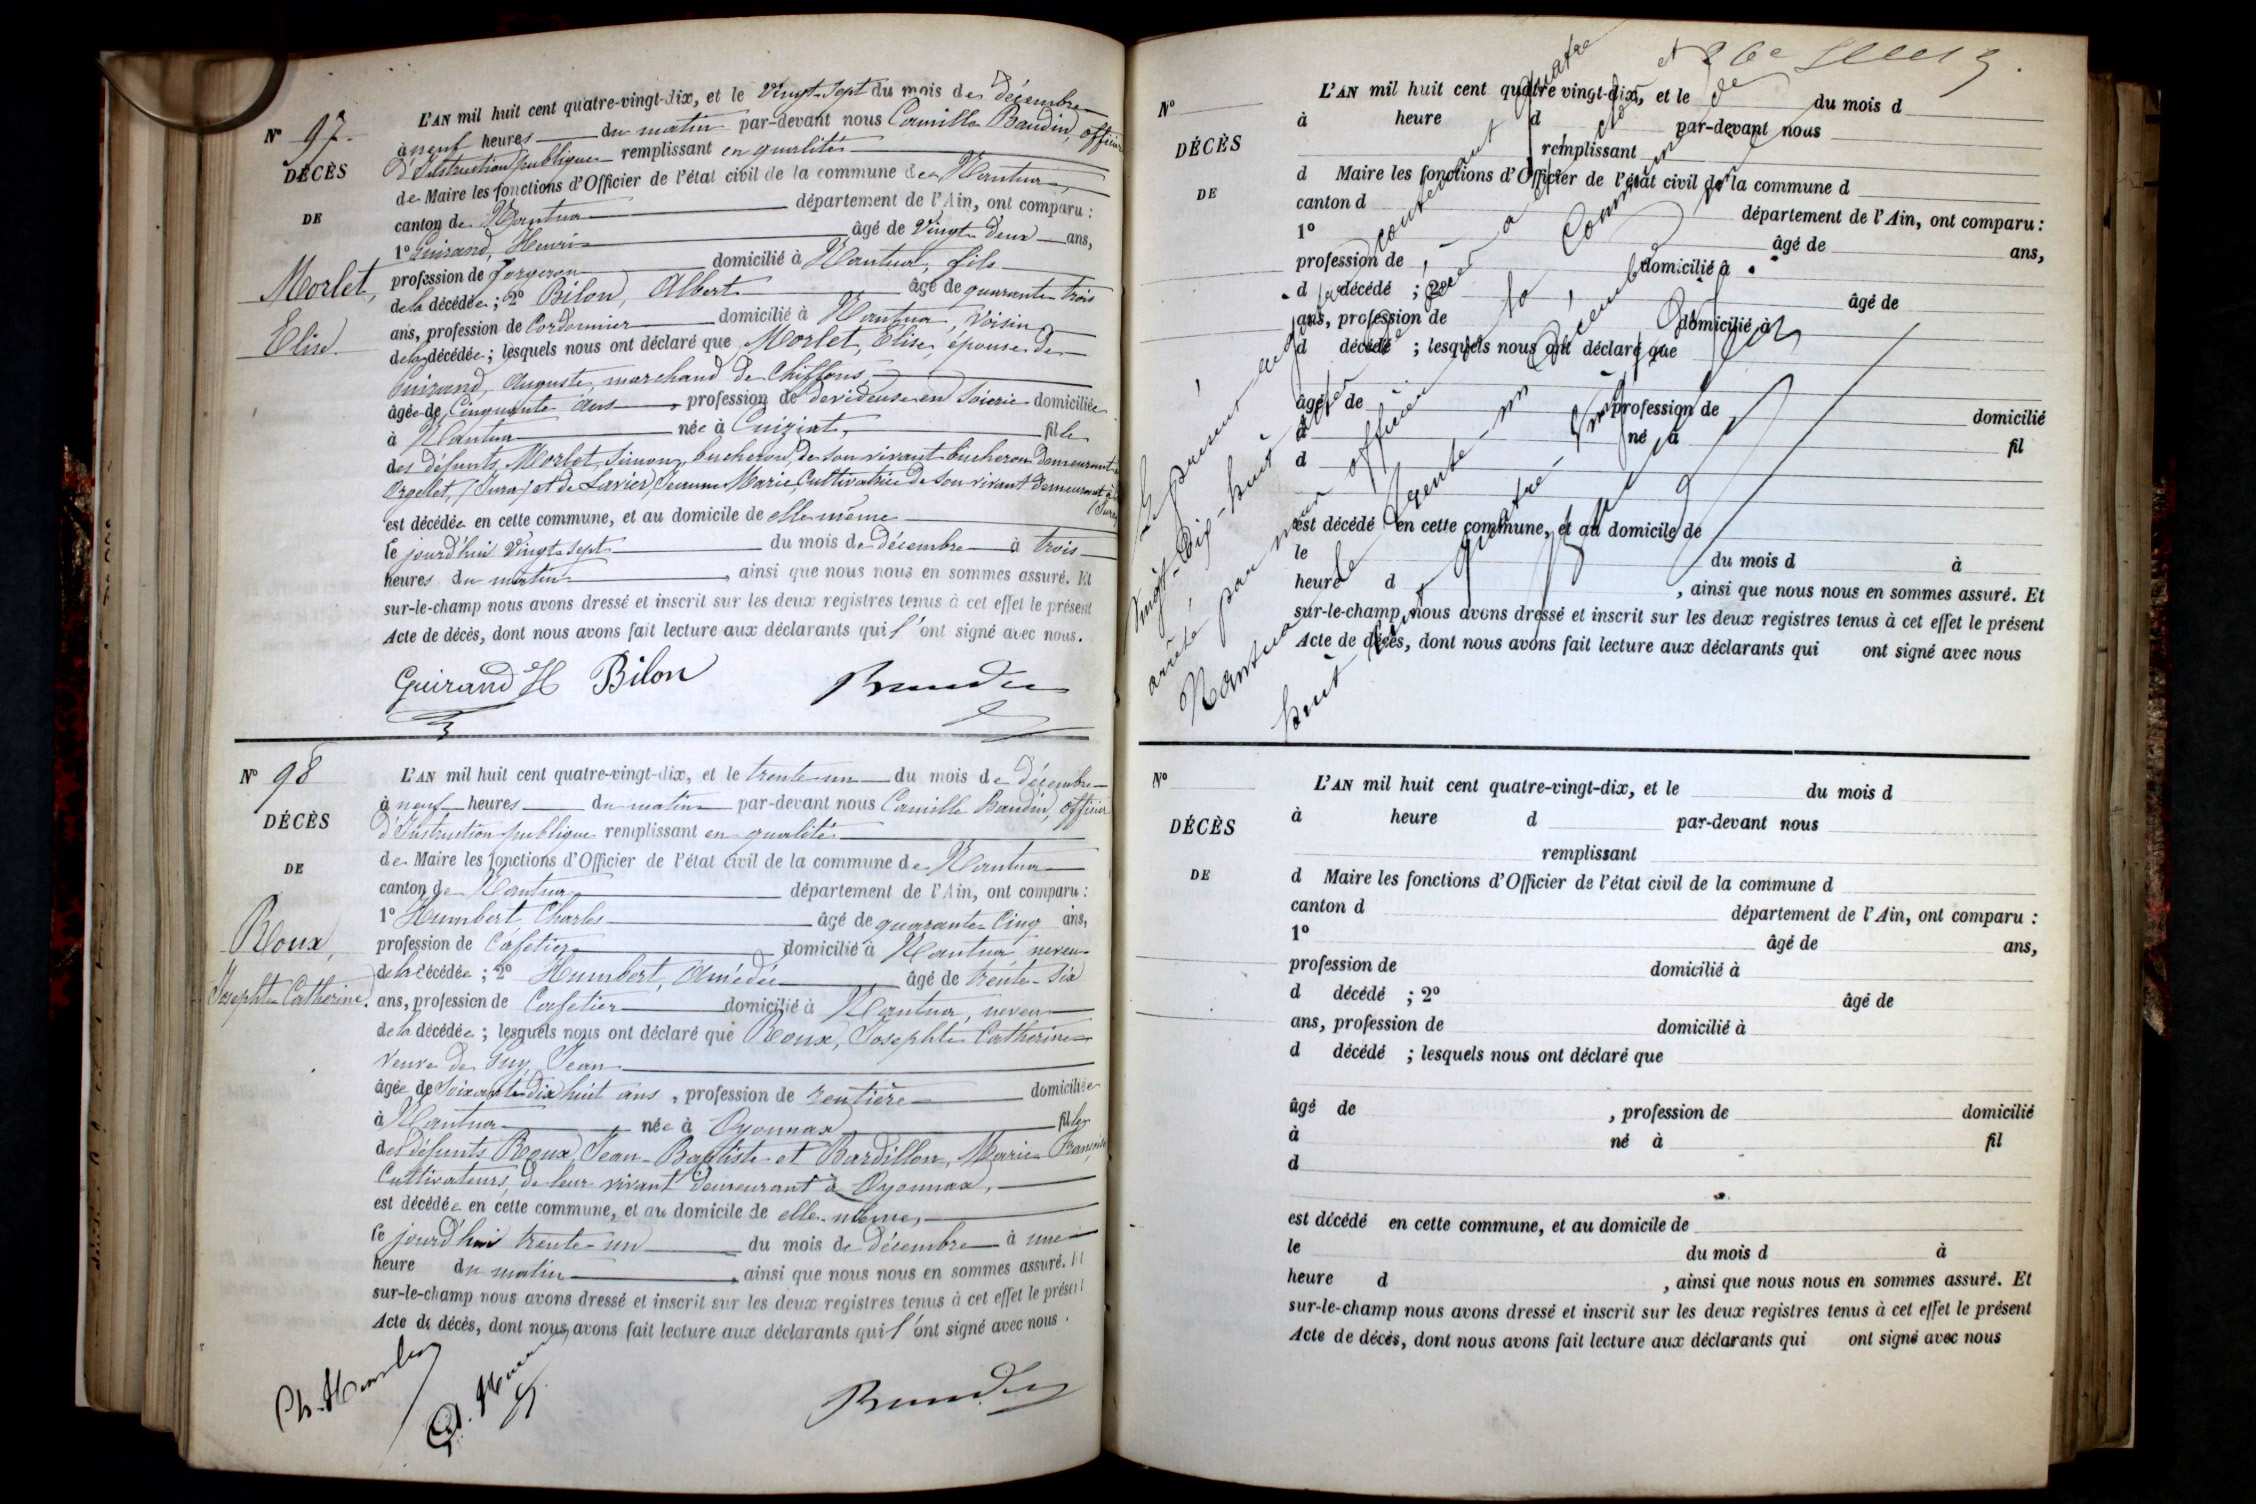 Nº 97
DÉCÈS
DE
Morlet,
Elise.
L'AN mil huit cent quatre-vingt-dix, et le Vingt-Sept du mois de décembre
à neuf heures du matin par-devant nous Camille Baudin, officier
d'Instruction publique remplissant en qualité
de Maire les fonctions d'Officier de l'état civil de la commune de Nantua,
canton de Nantua département de l'Ain, ont comparu :
1º Guirand, Henri âgé de Vingt Deux ans,
profession de forgeron domicilié à Nantua, fils
de la décédée ; 2º Bilon, Albert âgé de quarante trois
ans, profession de Cordonnier domicilié à Nantua, Voisin
de la décédée ; lesquels nous ont déclaré que Morlet, Elise, épouse de
Guirand, Auguste, marchand de Chiffons,
âgée de Cinquante ans, profession de dévideuse en Soierie domiciliée
à Nantua née à Cuiziat, fille
des défunts Morlet, Simon, bucheron, de son vivant bucheron demeurant à
Orgelet, (Jura) et de Lavier, Jeanne Marie, Cultivatrice de son vivant demeurant à
(Jura)
est décédée en cette commune, et au domicile de elle même
le jourd'hui Vingt-Sept du mois de décembre à trois
heures du matin, ainsi que nous nous en sommes assuré. Et
sur-le-champ nous avons dressé et inscrit sur les deux registres tenus à cet effet le présent
Acte de décès, dont nous avons fait lecture aux déclarants qui l'ont signé avec nous.
Guirand H Bilon Baudin
Nº 98
DÉCÈS
DE
Roux,
Josephte Catherine.
L'AN mil huit cent quatre-vingt-dix, et le trente-un du mois de décembre
à neuf heures du matin par-devant nous Camille Baudin, officier
d'Instruction publique remplissant en qualité
de Maire les fonctions d'Officier de l'état civil de la commune de Nantua
canton de Nantua département de l'Ain, ont comparu :
1º Humbert, Charles âgé de quarante Cinq ans,
profession de Cafetier domicilié à Nantua, neveu
de la décédée ; 2º Humbert, Amédée âgé de trente-six
ans, profession de Cafetier domicilié à Nantua, neveu
de la décédée ; lesquels nous ont déclaré que Roux, Josephte Catherine
Veuve de Guy, Jean
âgée de Soixante dix huit ans, profession de rentière domiciliée
à Nantua née à Oyonnax fille
des défunts Roux, Jean-Baptiste et Bardillon, Marie Françoise
Cultivateurs, de leur vivant demeurant à Oyonnax,
est décédée en cette commune, et au domicile de elle-même,
le jourd'hui trente-un du mois de décembre à une
heure du matin, ainsi que nous nous en sommes assuré. Et
sur-le-champ nous avons dressé et inscrit sur les deux registres tenus à cet effet le présent
Acte de décès, dont nous avons fait lecture aux déclarants qui l'ont signé avec nous.
Ch. Humbert
Baudin
Nº
DÉCÈS
DE
L'AN mil huit cent quatre-vingt-dix, et le du mois d
à heure d par-devant nous
remplissant
d Maire les fonctions d'Officier de l'état civil de la commune d
canton d département de l'Ain, ont comparu :
1º âgé de ans,
profession de domicilié à
d décédé ; 2º âgé de
ans, profession de domicilié à
d décédé ; lesquels nous ont déclaré que
âgé de , profession de domicilié
à né à fil
d
est décédé en cette commune, et au domicile de
le du mois d à
heure d , ainsi que nous nous en sommes assuré. Et
sur-le-champ nous avons dressé et inscrit sur les deux registres tenus à cet effet le présent
Acte de décès, dont nous avons fait lecture aux déclarants qui ont signé avec nous
Le présent registre contenant quatre
Vingt-Dix-huit actes de décès a été clos et
arrêté par nous officier de la Commune de
Nantua le trente-un Décembre mil
huit cent quatre-vingt-dix
Nº
DÉCÈS
DE
L'AN mil huit cent quatre-vingt-dix, et le du mois d
à heure d par-devant nous
remplissant
d Maire les fonctions d'Officier de l'état civil de la commune d
canton d département de l'Ain, ont comparu :
1º âgé de ans,
profession de domicilié à
d décédé ; 2º âgé de
ans, profession de domicilié à
d décédé ; lesquels nous ont déclaré que
âgé de , profession de domicilié
à né à fil
d
est décédé en cette commune, et au domicile de
le du mois d à
heure d , ainsi que nous nous en sommes assuré. Et
sur-le-champ nous avons dressé et inscrit sur les deux registres tenus à cet effet le présent
Acte de décès, dont nous avons fait lecture aux déclarants qui ont signé avec nous